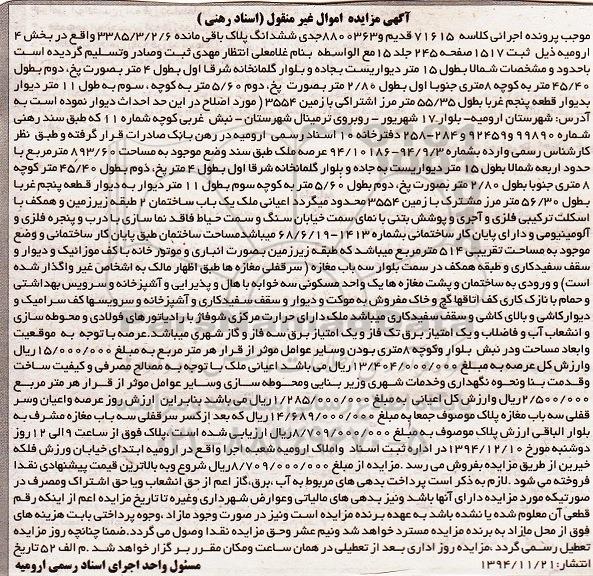 آگهی مزایده اموال غیر منقول (اسناد رهنی )
موجب پرونده اجرائی کلاسه ۷۱۶۱۵ قدیم و۸۸۰۰۳۶۳جدی ششدانگ پلاک باقی مانده ۳۳۸۵/۳/۲/۶ واقع در بخش ۴
ارومیه ذیل ثبت ۱۵۱۷ صفحه ۲۴۵ جلد ۱۵ مع الواسطه بنام غلامعلی انتظار مهدی ثبت وصادر وتسلیم گردیده است
باحدود و مشخصات شمالا بطول ۱۵ متر دیواریست بجاده و بلوار گلمانخانه شرقا اول بطول ۴ متر بصورت پخ، دوم بطول
۴۵/۴۰ متر به کوچه ۸متری جنوبا اول بطول ۲/۸۰ متر بصورت پخ، دوم ۵/۶۰ متر به کوچه ، سوم به طول ۱۱ متر دیوار
بدیوار قطعه پنجم غربا بطول ۵۵/۳۵ متر مرز اشتراکی با زمین ۳۵۵۴ ( مورد اضلاع در این حد احداث دیوار نموده است به
آدرس: شهرستان ارومیه- بلوار ۱۷ شهریور - روبروی ترمینال شهرستان - نبش غربی کوچه شماره ۱۱ که طبق سند رهنی
شماره ۹۹۸۹۰ و۹۲۴۵۹ و۲۸۴-۲۵۸ دفترخانه ۱۰ اسناد رسمی ارومیه در رهن بانک صادرات قرار گرفته و طبق نظر
کارشناس رسمی وارده بشماره ۹۴/۹/۳-۹۴/۱۰۱۸۶ عرصه ملک طبق سند وضع موجود به مساحت ۸۹۳/۶۰ مترمربع با
حدود اربعه شمالا بطول ۱۵ متر دیواریست به جاده و بلوار گلمانخانه شرقا اول بطول ۴ متر پخ، دوم بطول ۴۵/۴۰ متر کوچه
۸ متری جنوبا بطول ۲/۸۰ متر بصورت پخ، دوم بطول ۵/۶۰ متر به کوچه سوم بطول ۱۱ متر دیوار به دیوار قطعه پنجم غربا
بطول ۵۶/۳۰ متر مرز مشترک با زمین ۳۵۵۴ محدود میگردد اعیانی ملک یک باب ساختمان ۲ طبقه زیرزمین و همکف با
اسکلت ترکیبی فلزی و آجری و پوشش بتنی با نمای سمت خیابان سنگ و سمت حیاط فاقد نما سازی با درب و پنجره فلزی و
آلومینیومی و دارای پایان کار ساختمانی بشماره ۱۴۱۳-۶۸/۶/۱۹ میباشد مساحت ساختمان طبق پایان کار ساختمانی و وضع
موجود به مساحت تقریبی ۵۱۴ مترمربع میباشد که طبقه زیرزمین بصورت انباری و موتور خانه با کف موزائیک و دیوار و
سقف سفیدکاری و طبقه همکف در سمت بلوار سه باب مغازه ( سرقفلی مغازه ها طبق اظهار مالک به اشخاص غیر واگذار شده
است) و ورودی به ساختمان و پشت مغازه ها یک واحد مسکونی سه خوابه با هال و پذیرایی و آشپزخانه و سرویس بهداشتی
و حمام با نازک کاری کف اتاقها گچ و خاک مفروش به موکت و دیوار و سقف سفیدکاری و آشپزخانه و سرویسها کف سرامیک و
دیوار کاشی و بالای کاشی و سقف سفیدکاری میباشد ملک دارای حرارت مرکزی شوفاژ با رادیاتور های فولادی و محوطه سازی
و انشعاب آب و فاضلاب و یک امتیاز برق تک فاز و یک امتیاز برق سه فاز و گاز شهری میباشد.عرصه با توجه به موقعیت
وابعاد مساحت ودر نبش بلوار وکوچه ۸متری بودن وسایر عوامل موثر از قرار هر متر مربع به مبلغ ۱۵/۰۰۰/۰۰۰ریال
وارزش کل عرصه به مبلغ ۱۳/۴۰۴/۰۰۰/۰۰۰ ریال می باشد.اعیانی ملک با توجه به مصالح مصرفی و کیفیت ساخت
وقدمت بنا ونحوه نگهداری وخدمات شهری وزیر بنایی ومحوطه سازی وسایر عوامل موثر از قرار هر متر مربع
۲/۵۰۰/۰۰۰ریال وارزش کل اعیانی به مبلغ ۱/۲۸۵/۰۰۰/۰۰۰ریال می باشد بنابر این ارزش روز عرصه واعیان وسر
قفلی سه باب مغازه پلاک موصوف جمعا به مبلغ ۱۴/۶۸۹/۰۰۰/۰۰۰ ریال که بعد از کسر سرقفلی سه باب مغازه مشرف به
بلوار الباقی ارزش پلاک موصوف به مبلغ ۸/۷۰۹/۰۰۰/۰۰۰ریال ارزیابی شده است . پلاک فوق از ساعت ۹ الی ۱۲ روز
دوشنبه مورخ ۱۳۹۴/۱۲/۱۰ در اداره ثبت اسناد واملاک ارومیه شعبه اجرا واقع در ارومیه ابتدای خیابان ورزش فلکه
خیرین از طریق مزایده بفروش می رسد .مزایده از مبلغ ۸/۷۰۹/۰۰۰/۰۰۰ریال شروع وبه بالاترین قیمت پیشنهادی نقدا
فروخته می شود .لازم به ذکر است پرداخت بدهی های مربوط به آب ،برق،گاز اعم از حق انشعاب ویا حق اشتراک ومصرف در
صورتیکه مورد مزایده دارای آنها باشد ونیز بدهی های مالیاتی وعوارض شهرداری وغیره تا تاریخ مزایده اعم از اینکه رقم
قطعی آن معلوم شده یا نشده باشد به عهده برنده مزایده است ونیز در صورت وجود مازاد ،وجوه پرداختی بابت هزینه های
فوق از محل مازاد به برنده مزایده مسترد خواهد شد ونیم عشر وحق مزایده نقدا وصول می گردد.ضمنا چنانچه روز مزایده
تعطیل رسمی گردد .مزایده روز اداری بعد از تعطیلی در همان ساعت ومکان مقرر بر گزار خواهد شد .م الف ۵۲ تاریخ
انتشار: ۱۳۹۴/۱۱/۲۱ مسئول واحد اجرای اسناد رسمی ارومیه